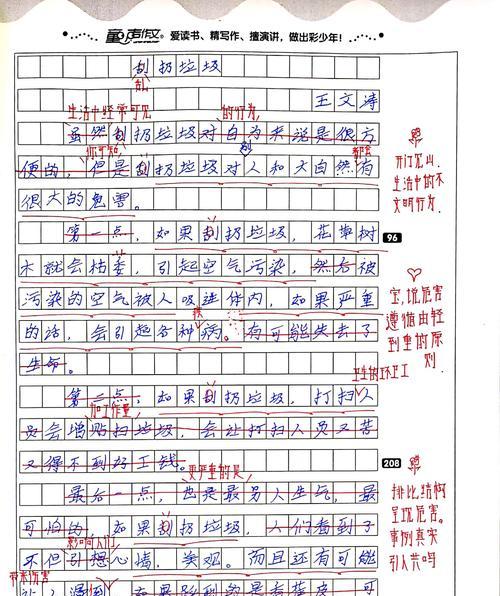 童声作文。爱读书、精写作、擅演讲，做出彩少年！
刮扔垃圾
乱
王文涛
生活中经常可见 的行为，
虽然刮扔垃圾对自为来说是很方
你可知 都会
便的，但是刮扔垃圾对人和大自然有
很大的危害。
开门见山，
生活中的不
文明行为。
第一点，如果刮扔垃圾，花草树
96
木就会枯萎，引起空气污染，然后被
污染的空气被人吸进体内，如果严重
疾
的话，会引起各种病。有可能失去了
生命。
宝，说危害
遵循由轻
到重的原
则
卫生的环卫工
第二点，如果刮扔垃圾，打扫人
加工作量，
员会增贴扫垃圾，会让打扫人员又苦
又得不到好工钱。
208
更严重的是
最后一点，也是最另人生气，最
可怕的，如果刮扔垃圾，人们看到了
影响人们
不但引想心情，美观。而且还有可能
带来伤害
排比结构
呈现危害。
事例真实
引人共鸣